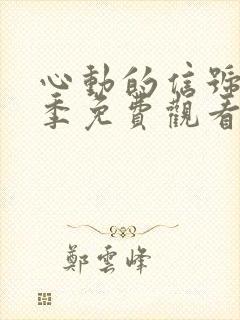 心動的信號
季免費觀看
鄭雲峰